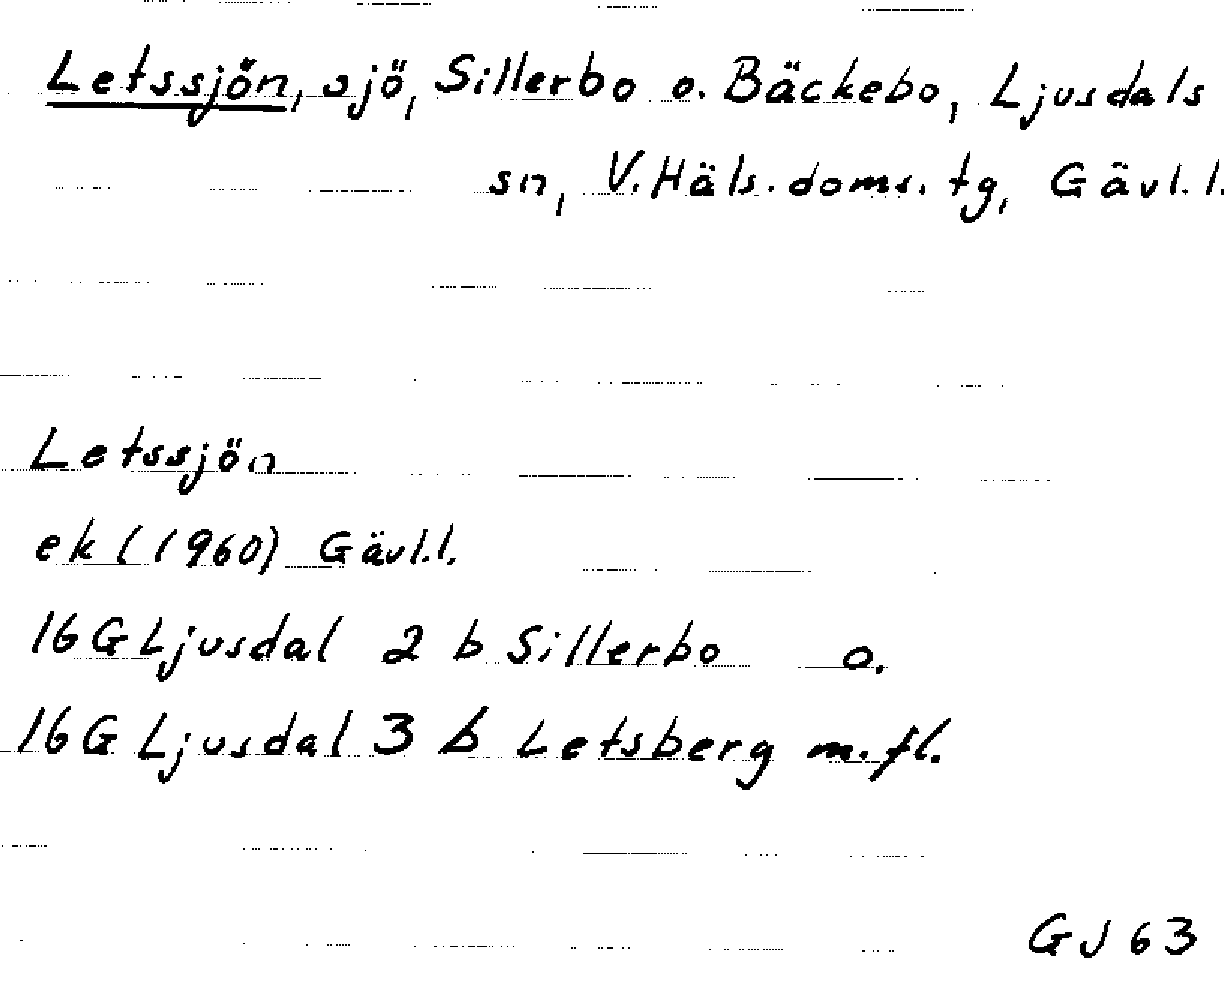 Letssjön, sjö, Sillerbo o. Bäckebo, Ljusdals
sn, V. Häls. doms. tg, Gävl. l.
Letssjön
ek (1960) Gävl. l.
16 G Ljusdal 2 b Sillerbo o.
16 G Ljusdal 3 b Letsberg m. fl.
GJ 63